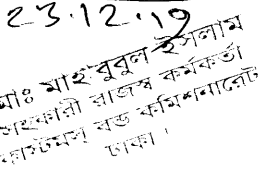 23.12.19
মোঃ মাহবুবুল ইসলাম
সহকারী রাজস্ব কর্মকর্তা
কাস্টমস্ বন্ড কমিশনারেট
ঢাকা।